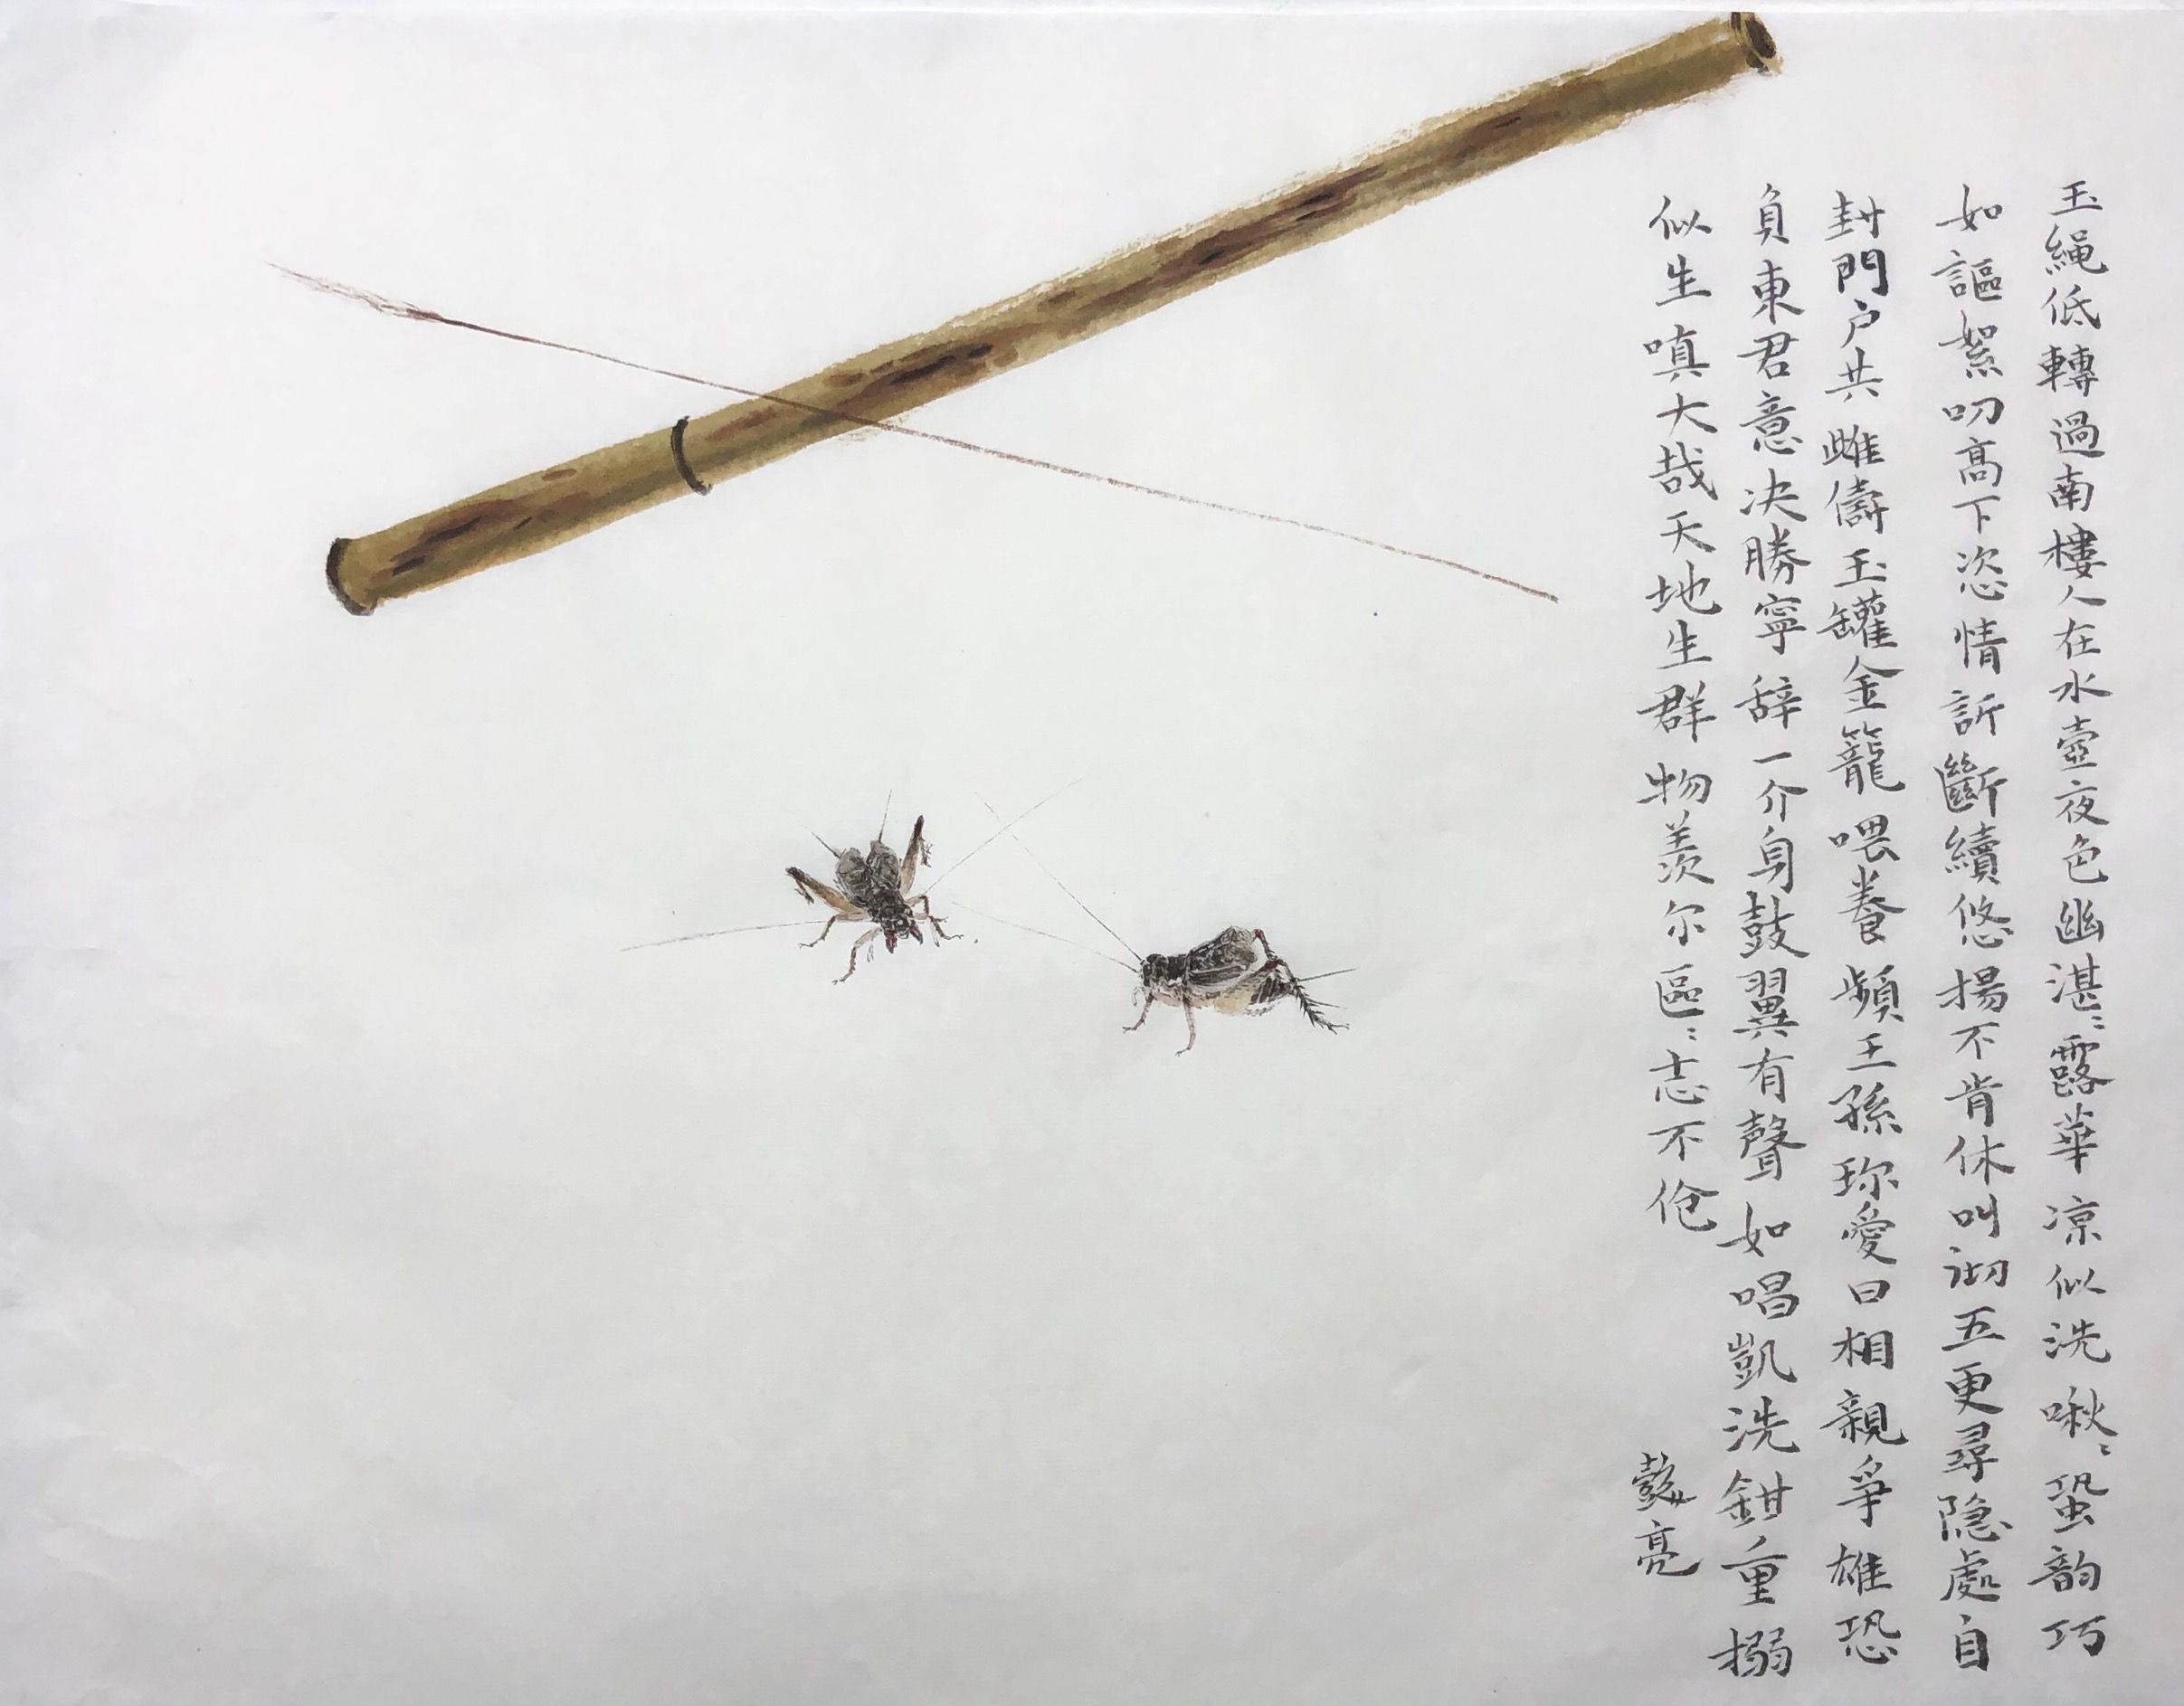 玉繩低轉過南樓人在水壺夜色幽湛〻露華涼似洗啾〻蛩韵巧
如謳絮叨高下恣情訴斷續悠揚不肯休叫沏五更尋隐處自
封門户共雌儔玉罐金籠喂養頻王孫珎愛日相親爭雄恐
負東君意决勝寧辞一介身鼓翼有聲如唱凱洗鉗重搦
似生嗔大哉天地生群物羨尔區〻志不伧
懿亮